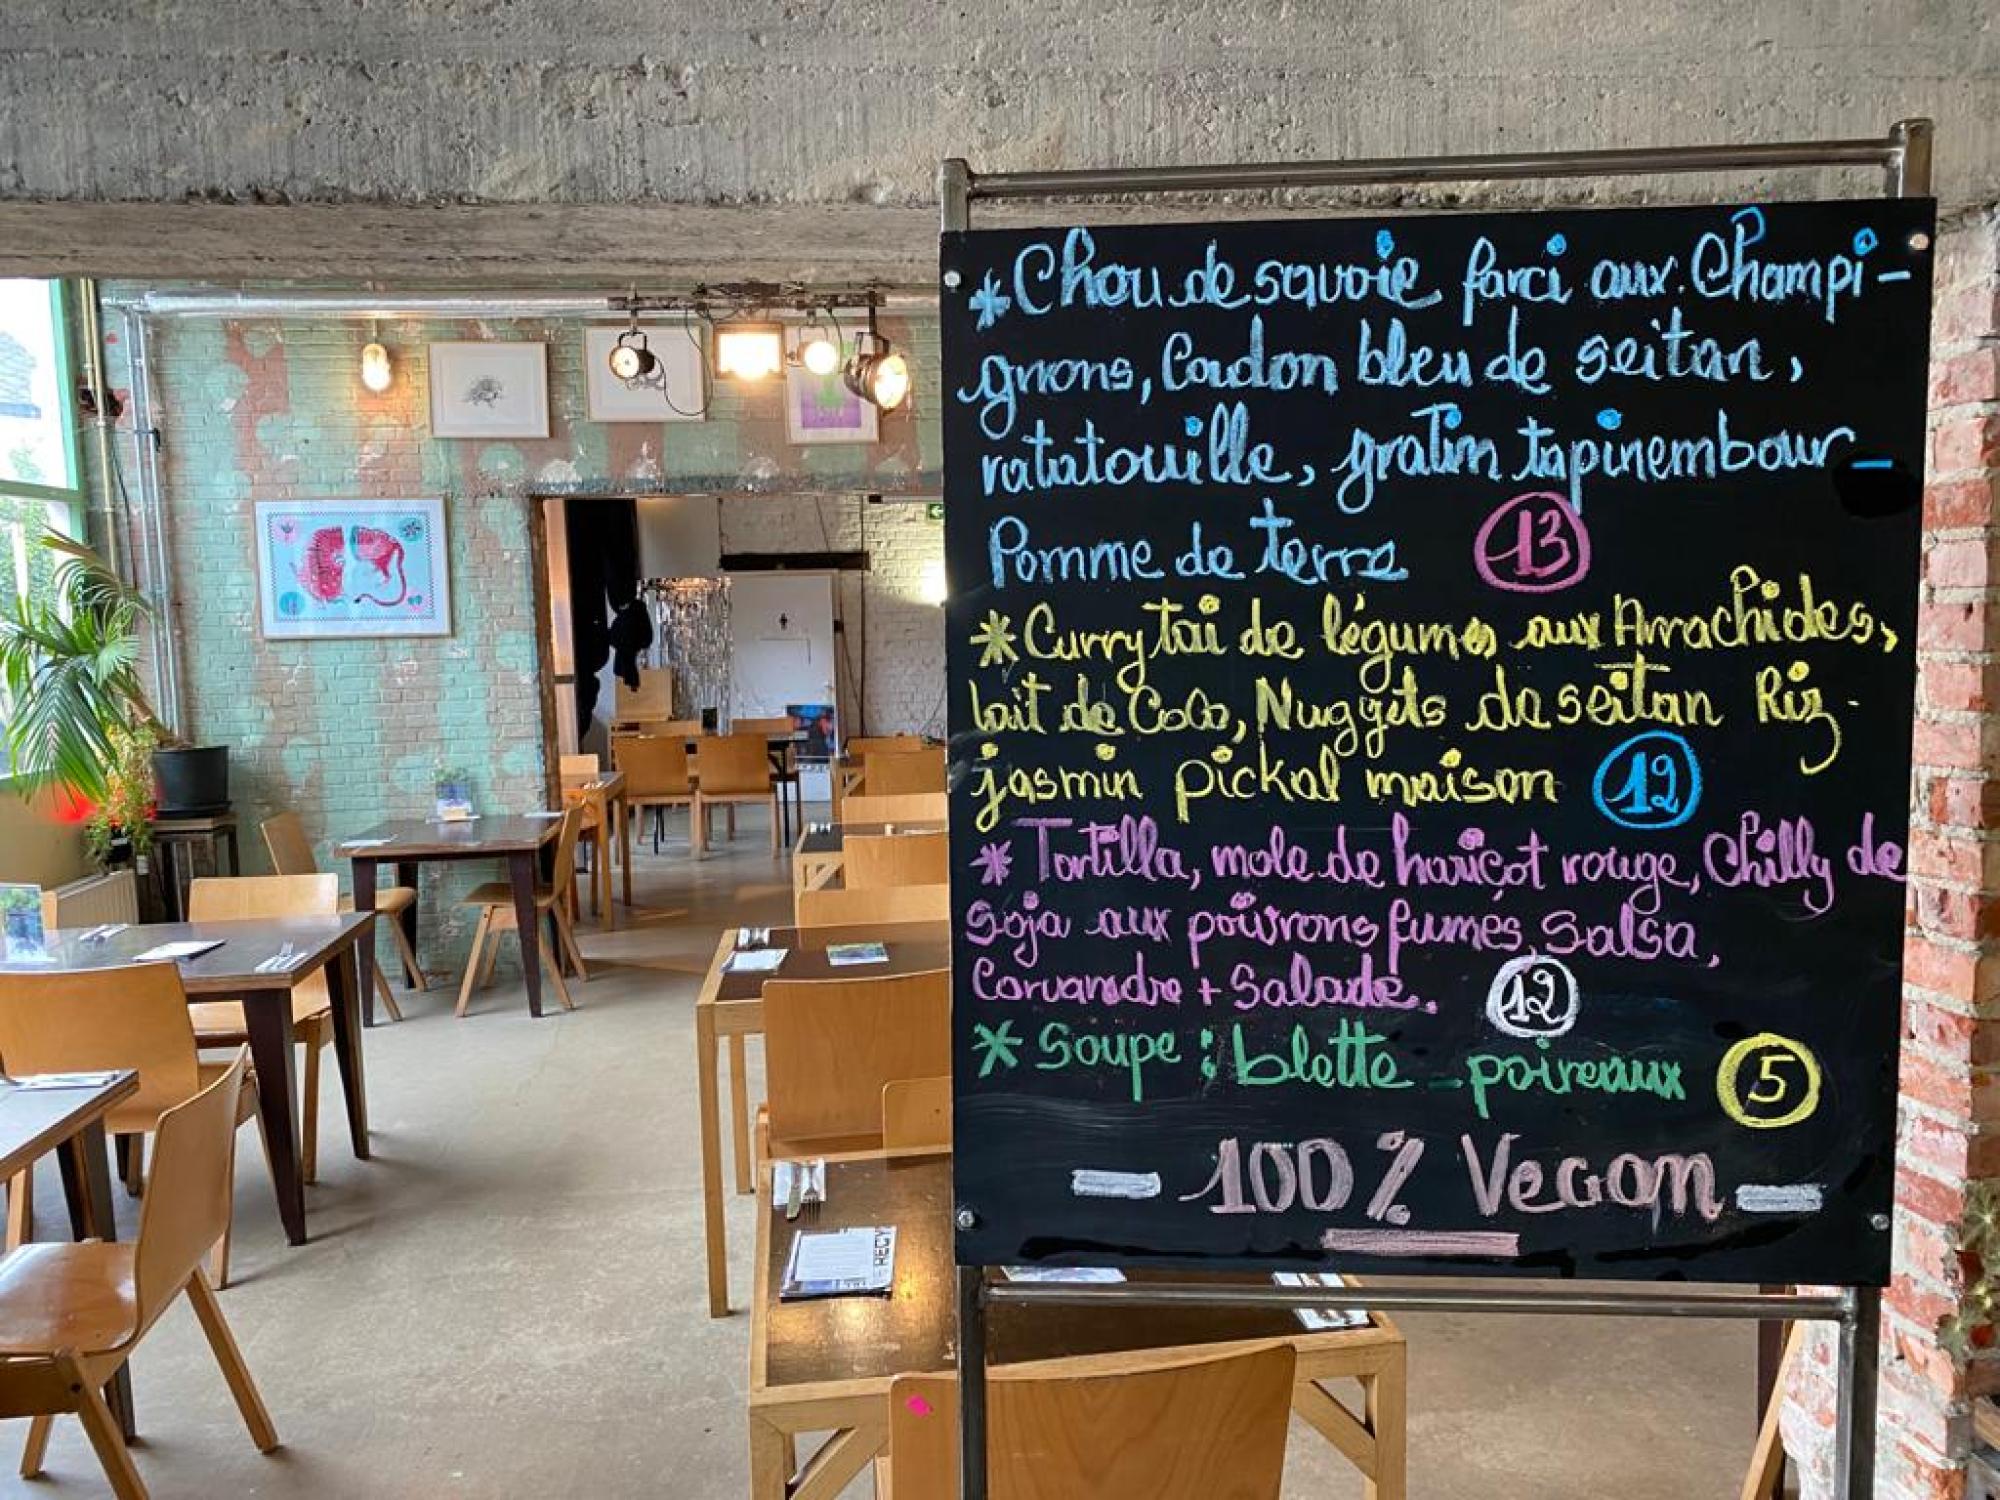 * Chou de savoie farci aux Champi-
gnons, Cordon bleu de seitan,
ratatouille, gratin topinembour-
Pomme de terre 13
* Curry tai de légumes aux Arrachides,
lait de Coco, Nuggets de seitan Riz-
jasmin pickal maison 12
* Tortilla, mole de haricot rouge, Chilly de
Soja aux poivrons fumés, Salsa,
Coriandre + Salade. 12
* Soupe : blette - poireaux 5
- 100% Vegan -